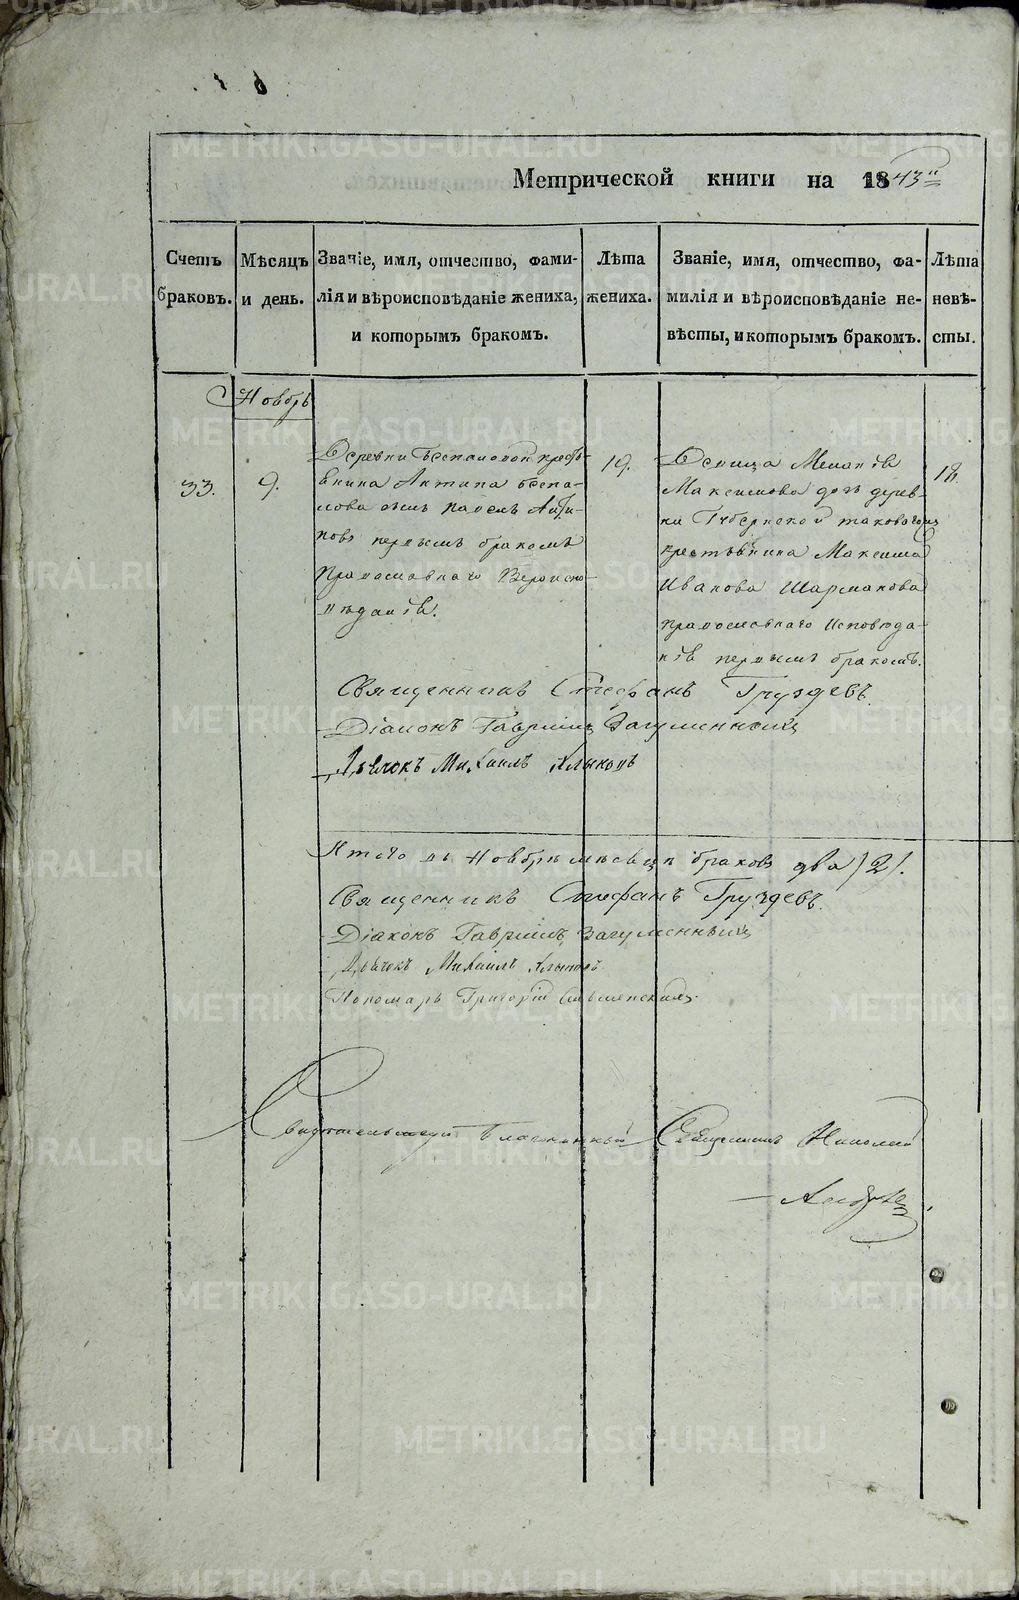 Метрической книги на 1843й
Счетъ браковъ.
Мѣсяцъ и день.
Званіе, имя, отчество, фамилія и вѣроисповѣданіе жениха, и которымъ бракомъ.
Лѣта жениха.
Званіе, имя, отчество, фамилія и вѣроисповѣданіе невѣсты, и которымъ бракомъ.
Лѣта невѣсты.
Ноябрь
33.
9.
Деревни Беспаловой кресть-
янина Антипа Беспа-
лова сынъ Павелъ Анти-
повъ первымъ бракомъ
Православнаго Вероиспо-
вѣданія.
19.
Девица Меланія
Максимова дочь дерев-
ни Губернской таковаго
крестьянина Максима
Иванова Шармакова
православнаго исповѣда-
нія первымъ бракомъ.
18.
Священникъ Стефанъ Груздевъ.
Діаконъ Гавріилъ Загуменный
Дьячокъ Михаилъ Клыковъ
Итого въ Ноябрѣ мѣсяцѣ браковъ два /2/.
Священникъ Стефанъ Груздевъ.
Діаконъ Гавріилъ Загуменный
Дьячокъ Михаилъ Клыковъ
Пономарь Григорій
Благочинный Священникъ Николай
METRIKI.GASO-URAL.RU